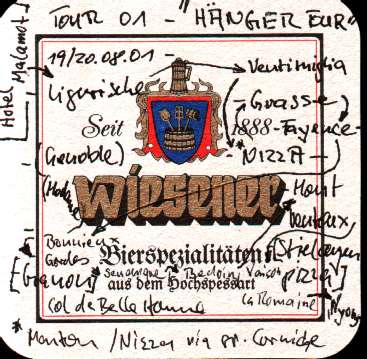 TOUR 01 - "HÄNGER TOUR"
19/20.08.01 -
Hotel
Ligurische
Ventimiglia
Grasse
Seit 1888
Fayence
NIZZA
Wiesener
Mont
Ventoux
Bonnieux
Gordes
Bierspezialitäten
Senanque Bedoin Vaison
la Romaine
Nyons
aus dem Hochspessart
Col de Belle Homme
* Menton / Nizza via gr. Corniche